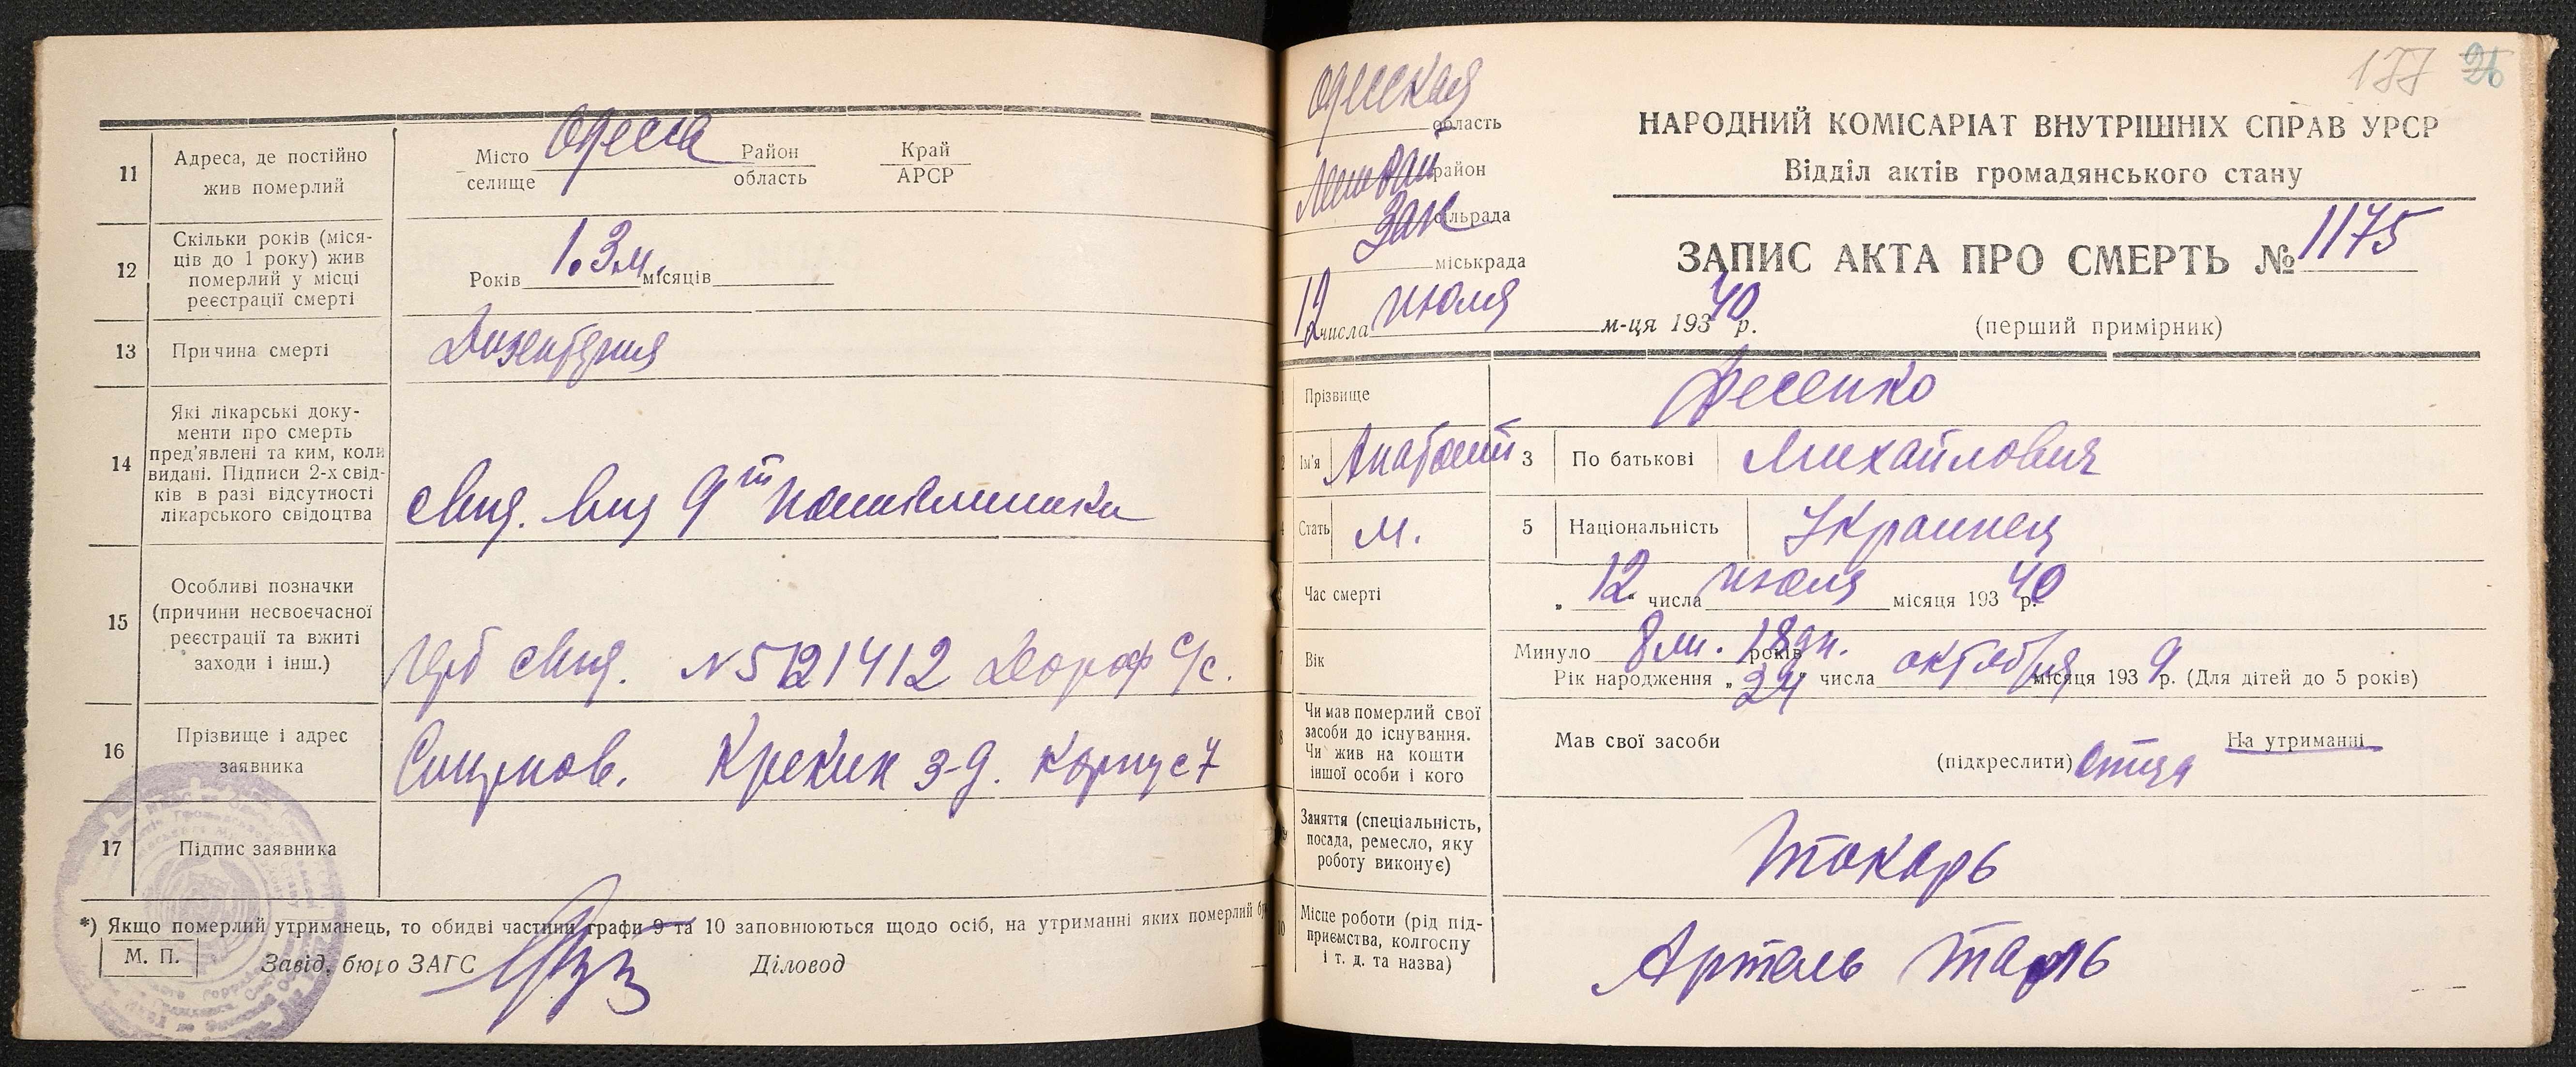 11
Адреса, де постійно
жив померлий
Місто Одесса Район Край
селище область АРСР
12
Скільки років (міся-
ців до 1 року) жив
померлий у місці
реєстрації смерті
Років 1.3 м. місяців
13
Причина смерті
Дизентерия
14
Які лікарські доку-
менти про смерть
пред'явлені та ким, коли
видані. Підписи 2-х свід-
ків в разі відсутності
лікарського свідоцтва
свид. 9й поликлиники
15
Особливі позначки
(причини несвоєчасної
реєстрації та вжиті
заходи і інш.)
свид. № 5121412 Дороф с/с.
16
Прізвище і адрес
заявника
Крекик з-д. корпус 7
17
Підпис заявника
*) Якщо померлий утриманець, то обидві частини графи 9 та 10 заповнюються щодо осіб, на утриманні яких померлий
М. П.
Завід. бюро ЗАГС Діловод
177 26
Одесская
область
район
Зак сільрада
міськрада
12 числа июля м-ця 193 40 р.
НАРОДНИЙ КОМІСАРІАТ ВНУТРІШНІХ СПРАВ УРСР
Відділ актів громадянського стану
ЗАПИС АКТА ПРО СМЕРТЬ № 1175
(перший примірник)
1 Прізвище Десенко
2 Ім'я Анатолий 3 По батькові Михайлович
4 Стать м. 5 Національність Украинец
Час смерті
„12“ числа июля місяця 193 40 р.
7 Вік
Минуло 8 м. 18 дн. років
Рік народження „24“ числа октября місяця 1939 р. (Для дітей до 5 років)
8
Чи мав померлий свої
засоби до існування.
Чи жив на кошти
іншої особи і кого
Мав свої засоби На утриманні
(підкреслити) отца
Заняття (спеціальність,
посада, ремесло, яку
роботу виконує)
Токарь
10
Місце роботи (рід під-
приємства, колгоспу
і т. д. та назва)
Артель